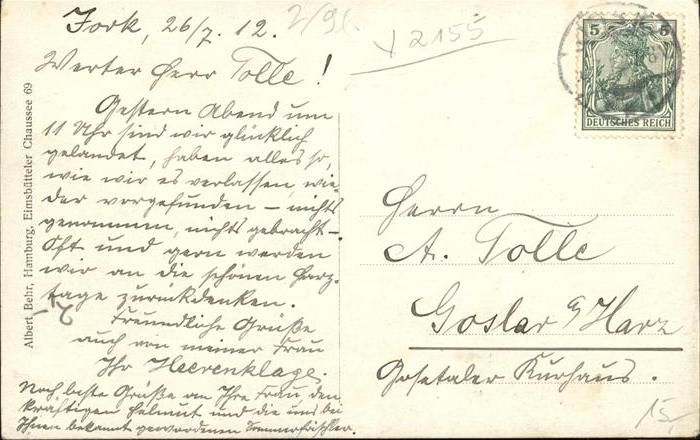 Jork, 26/7. 12.
Werter Herr Tolle!
Gestern Abend um
11 Uhr sind wir glücklich
gelandet, haben alles so,
wie wir es verlassen, wie-
der vorgefunden – nichts
genommen, nichts gebracht –
Oft und gern werden
wir an die schönen Harz-
tage zurückdenken.
Freundliche Grüße
auch von meiner Frau
Ihr Heerenklage.
Noch beste Grüße an Ihre Frau, den
kräftigen Helmut und die uns bei
Ihnen bekannt gewordenen Sommerfrischler.
Albert Behr, Hamburg, Eimsbütteler Chaussee 69
2155
5 5
DEUTSCHES REICH
Herrn
A. Tolle
Goslar a/Harz
Gosetaler Kurhaus.
15,